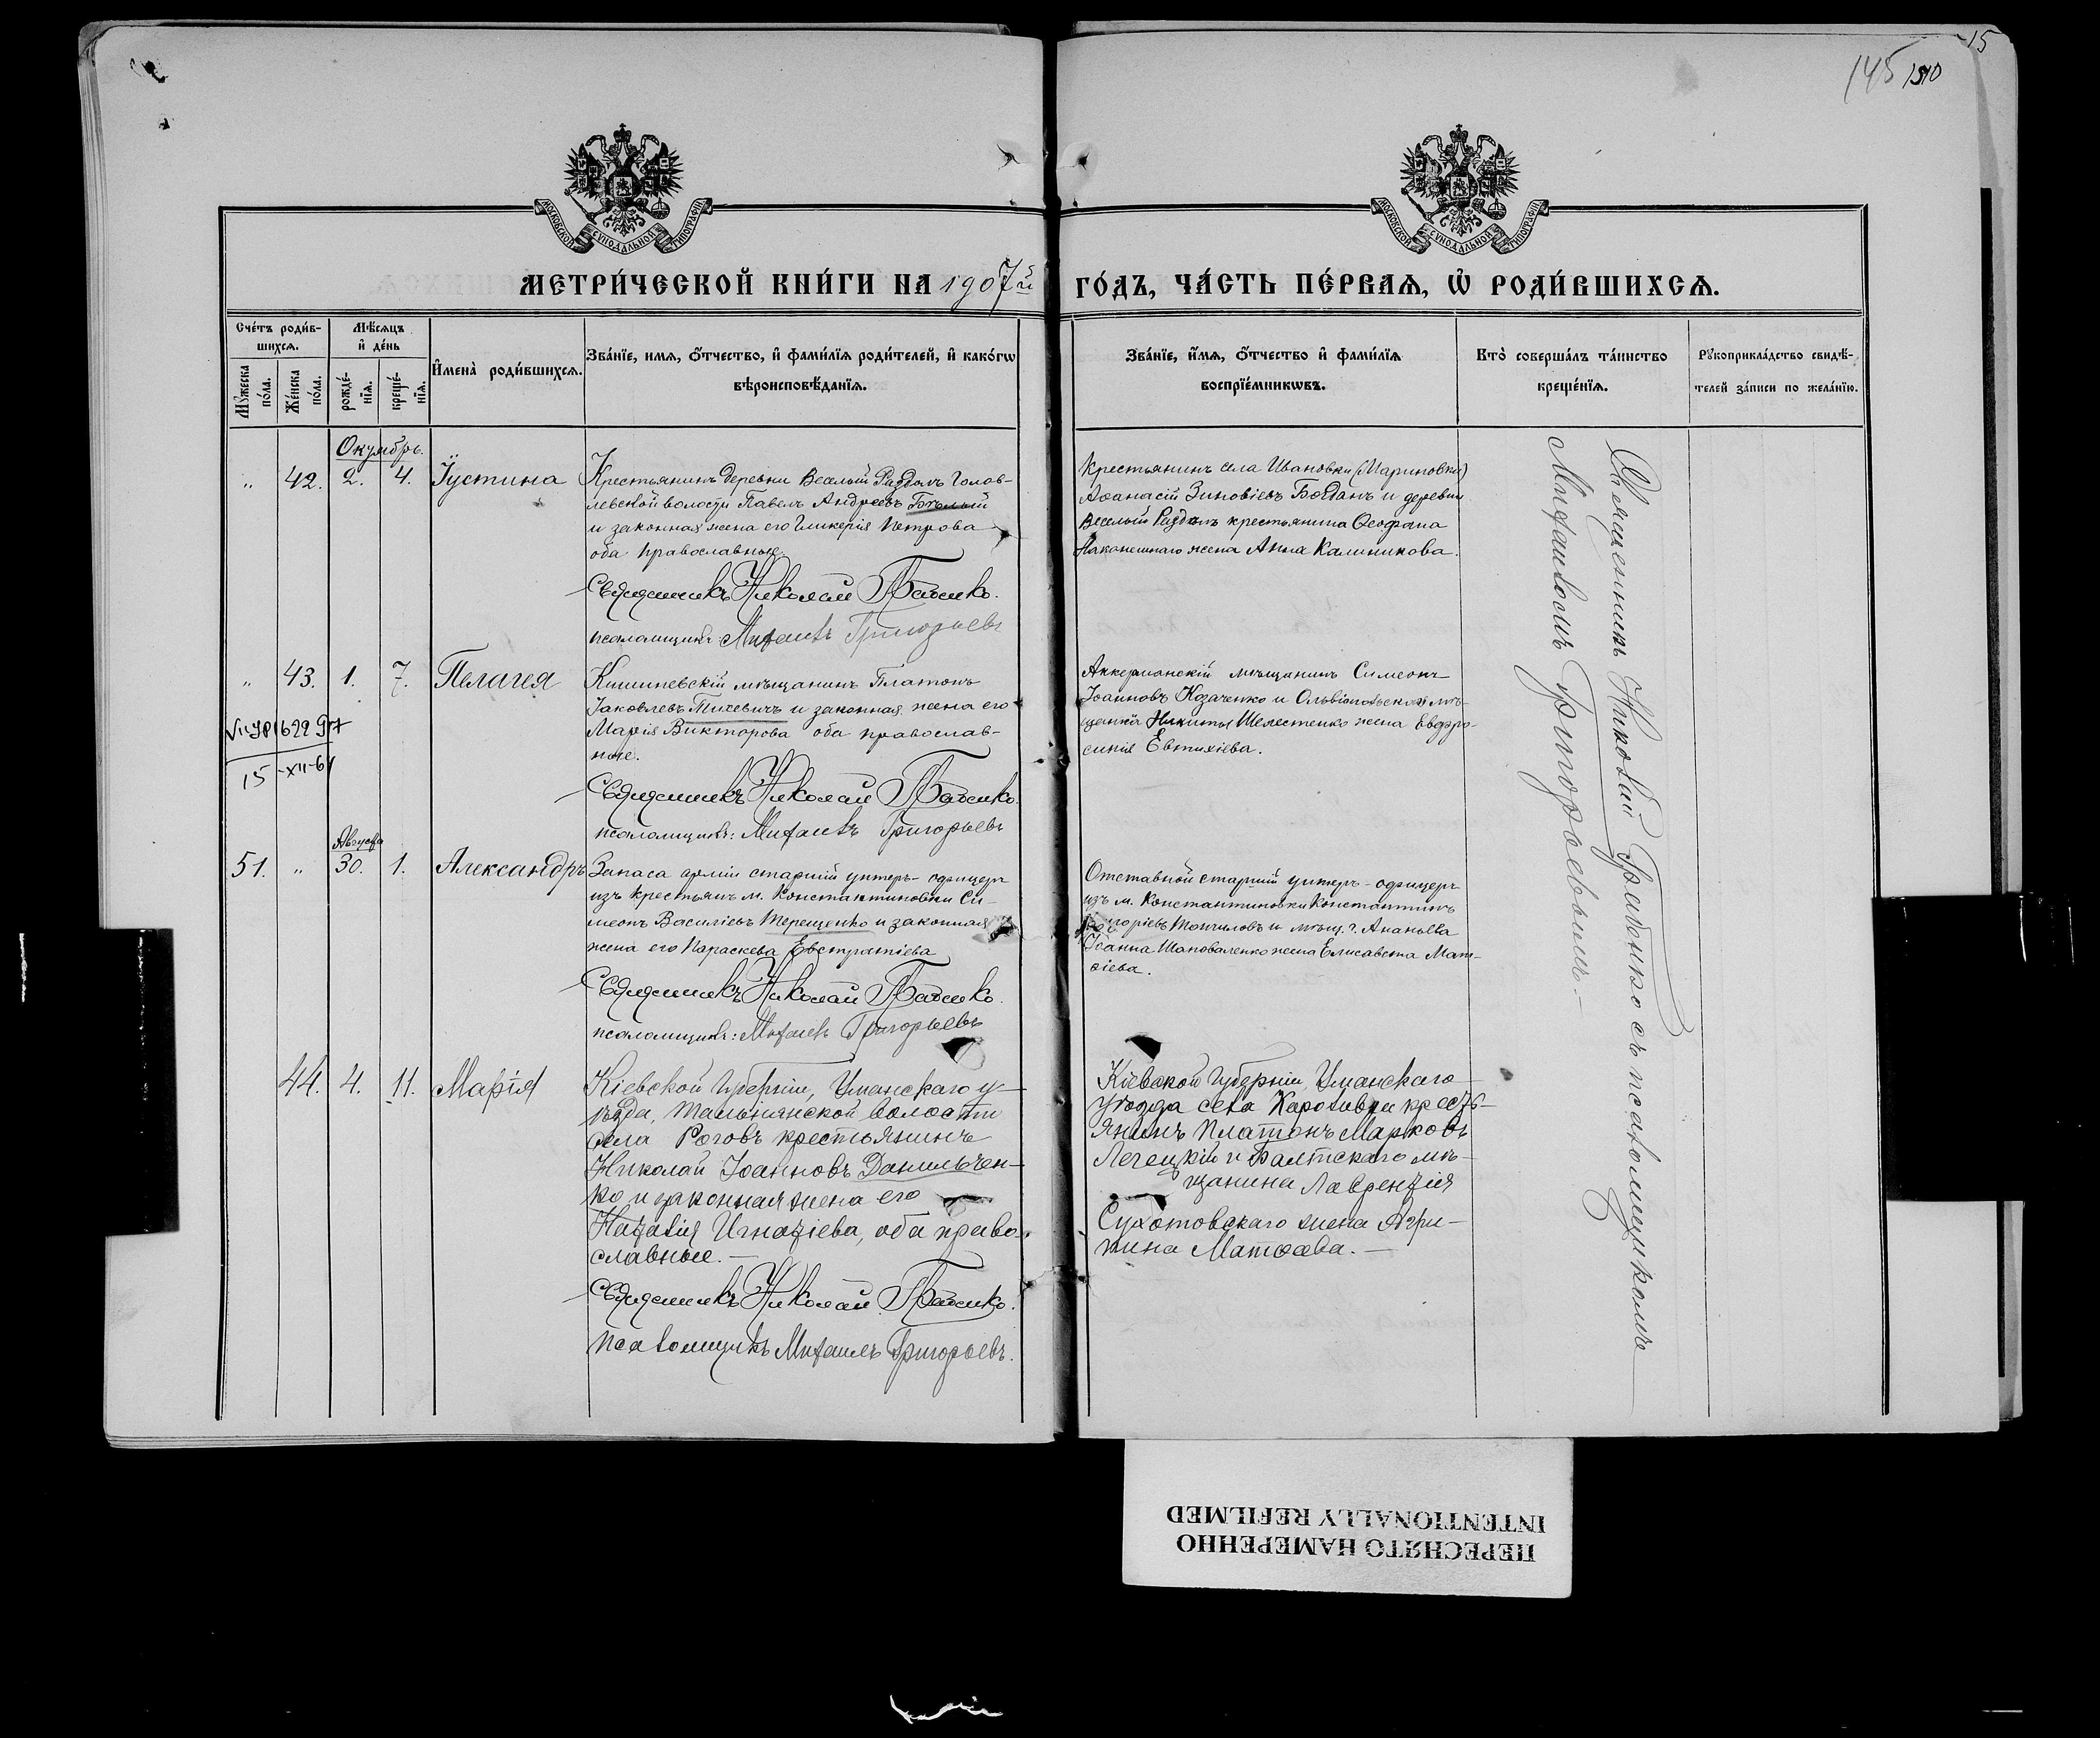 15
145 1510
МОСКОВСКОЙ СУНОДАЛЬНОЙ ТИПОГРАФІИ
МОСКОВСКОЙ СУНОДАЛЬНОЙ ТИПОГРАФІИ
МЕТРИ́ЧЕСКОЙ КНИ́ГИ НА 1907й ГО́ДЪ, ЧА́СТЬ ПЕ́РВАѦ, Ѿ РОДИ́ВШИХСѦ.
Сче́тъ роди́в-
шихсѧ.
Мꙋ́жеска по́ла.
Же́нска по́ла.
Мѣ́сѧцъ
и҆ де́нь
рожде́-
нїѧ.
креще́-
нїѧ.
И҆мена̀ роди́вшихсѧ.
Зва́нїе, имѧ, ѻ҆́тчество, и҆ фами́лїѧ роди́телей, и҆ како́гѡ
вѣроисповѣ́данїѧ.
Зва́нїе, и҆́мѧ, ѻ҆́тчество и҆ фами́лїѧ
воспрїе́мникѡвъ.
Кто̀ соверша́лъ та́инство
креще́нїѧ.
Рꙋкоприкла́дство свидѣ́-
телей за́писи по жела́нїю.
Октябрь.
„ 42. 2. 4. Іустина
Крестьянинъ деревни Веселый Раздолъ Голов-
левской волости Павелъ Андреевъ Бѣлый
и законная жена его Гликерія Петрова
оба православные.
Священникъ Николай Грабенко.
псаломщикъ: Михаилъ Григорьевъ
Крестьянинъ села Ивановки (Мариновки)
Аѳанасій Зиновіевъ Богданъ и деревни
Веселый Раздолъ крестьянина Ѳеофана
Наконешнаго жена Анна Калиникова.
„ 43. 1. 7. Пелагея
15-XII-61
Кишиневскій мѣщанинъ Платонъ
Іаковлевъ Тихевичъ и законная жена его
Марія Викторова оба православ-
ные.
Священникъ Николай Грабенко.
псаломщикъ: Михаилъ Григорьевъ
Аккерманскій мѣщанинъ Симеонъ
Іоанновъ Козаченко и Ольвіопольской мѣ-
щанина Никиты Шелестенко жена Евфро-
синія Евтихіева.
Августа
51. „ 30. 1. Александръ
Запаса арміи старшій унтеръ-офицеръ
изъ крестьянъ м. Константиновки Си-
меонъ Василіевъ Терещенко и законная
жена его Параскева Евстратіева
Священникъ Николай Грабенко.
псаломщикъ: Михаилъ Григорьевъ
Отставной старшій унтеръ-офицеръ
изъ м. Константиновки Константинъ
Григоріевъ Томчиловъ и мѣщ. г. Ананьева
Іоанна Шаповаленко жена Елисавета Мат-
ѳіева.
44. 4. 11. Марія
Кіевской губерніи, Уманскаго у-
ѣзда, Тальнянской волости
села Роговъ крестьянинъ
Николай Іоанновъ Данильчен-
ко и законная жена его
Наталія Игнатіева, оба право-
славные.—
Священникъ Николай Грабенко.
Псаломщикъ Михаилъ Григорьевъ.
Кіевской губерніи, Уманскаго
уѣзда села Кароливки кресть-
янинъ Платонъ Марковъ
Легецкій и Балтскаго мѣ-
щанина Лаврентія
Сухотовскаго жена Агри-
пина Матѳеева.—
Священникъ Николай Грабенко съ псаломщикомъ
Михаиломъ Григорьевымъ.—
ПЕРЕСНЯТО НАМЕРЕННО
INTENTIONALLY REFILMED